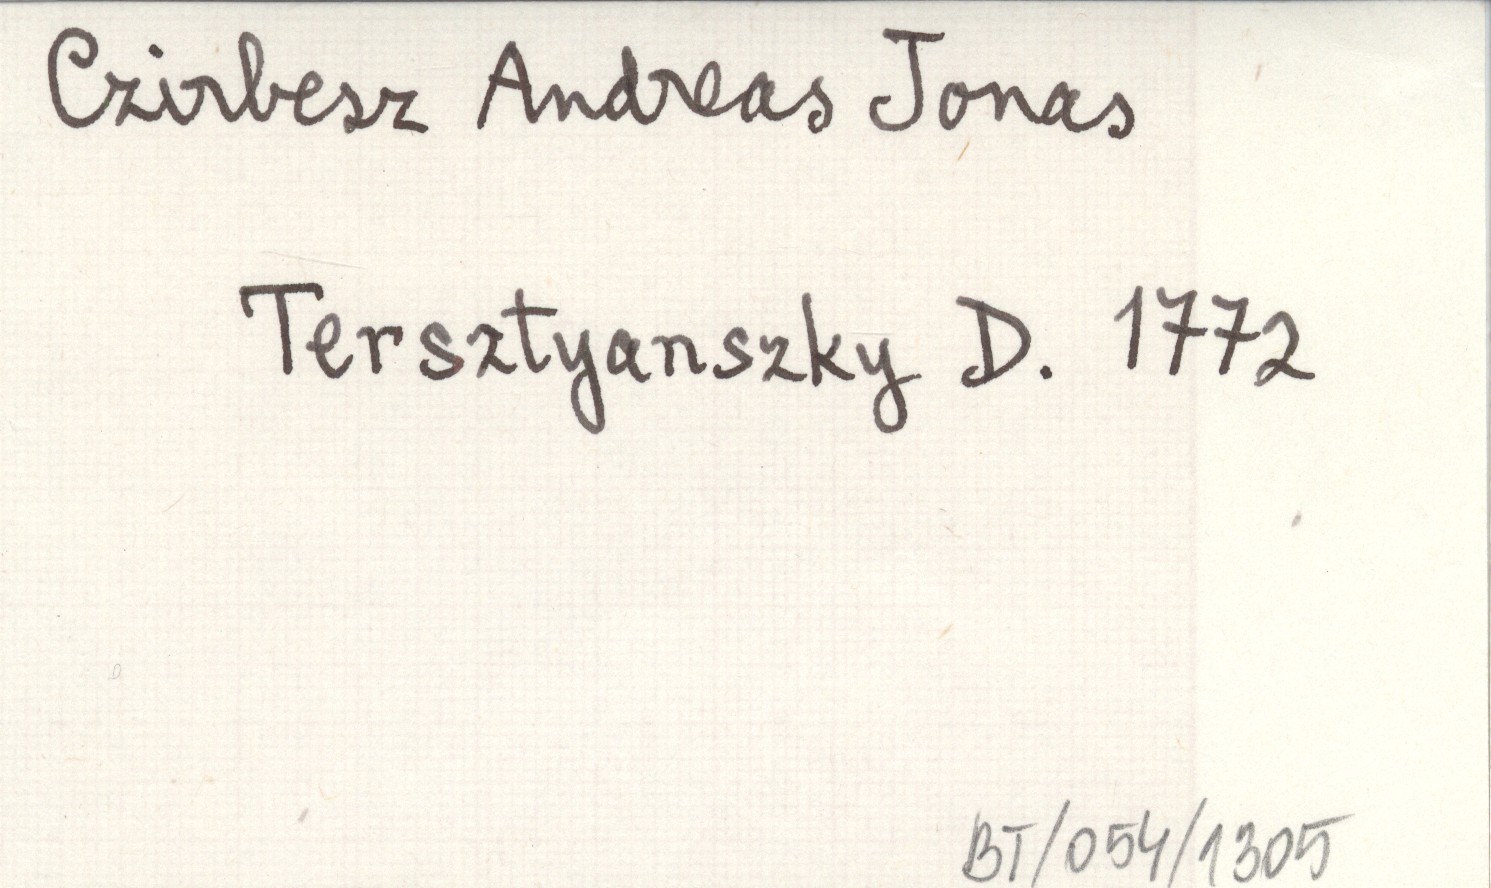 Czirbesz Andreas Jonas
Tersztyanszky D. 1772
BT/054/1305